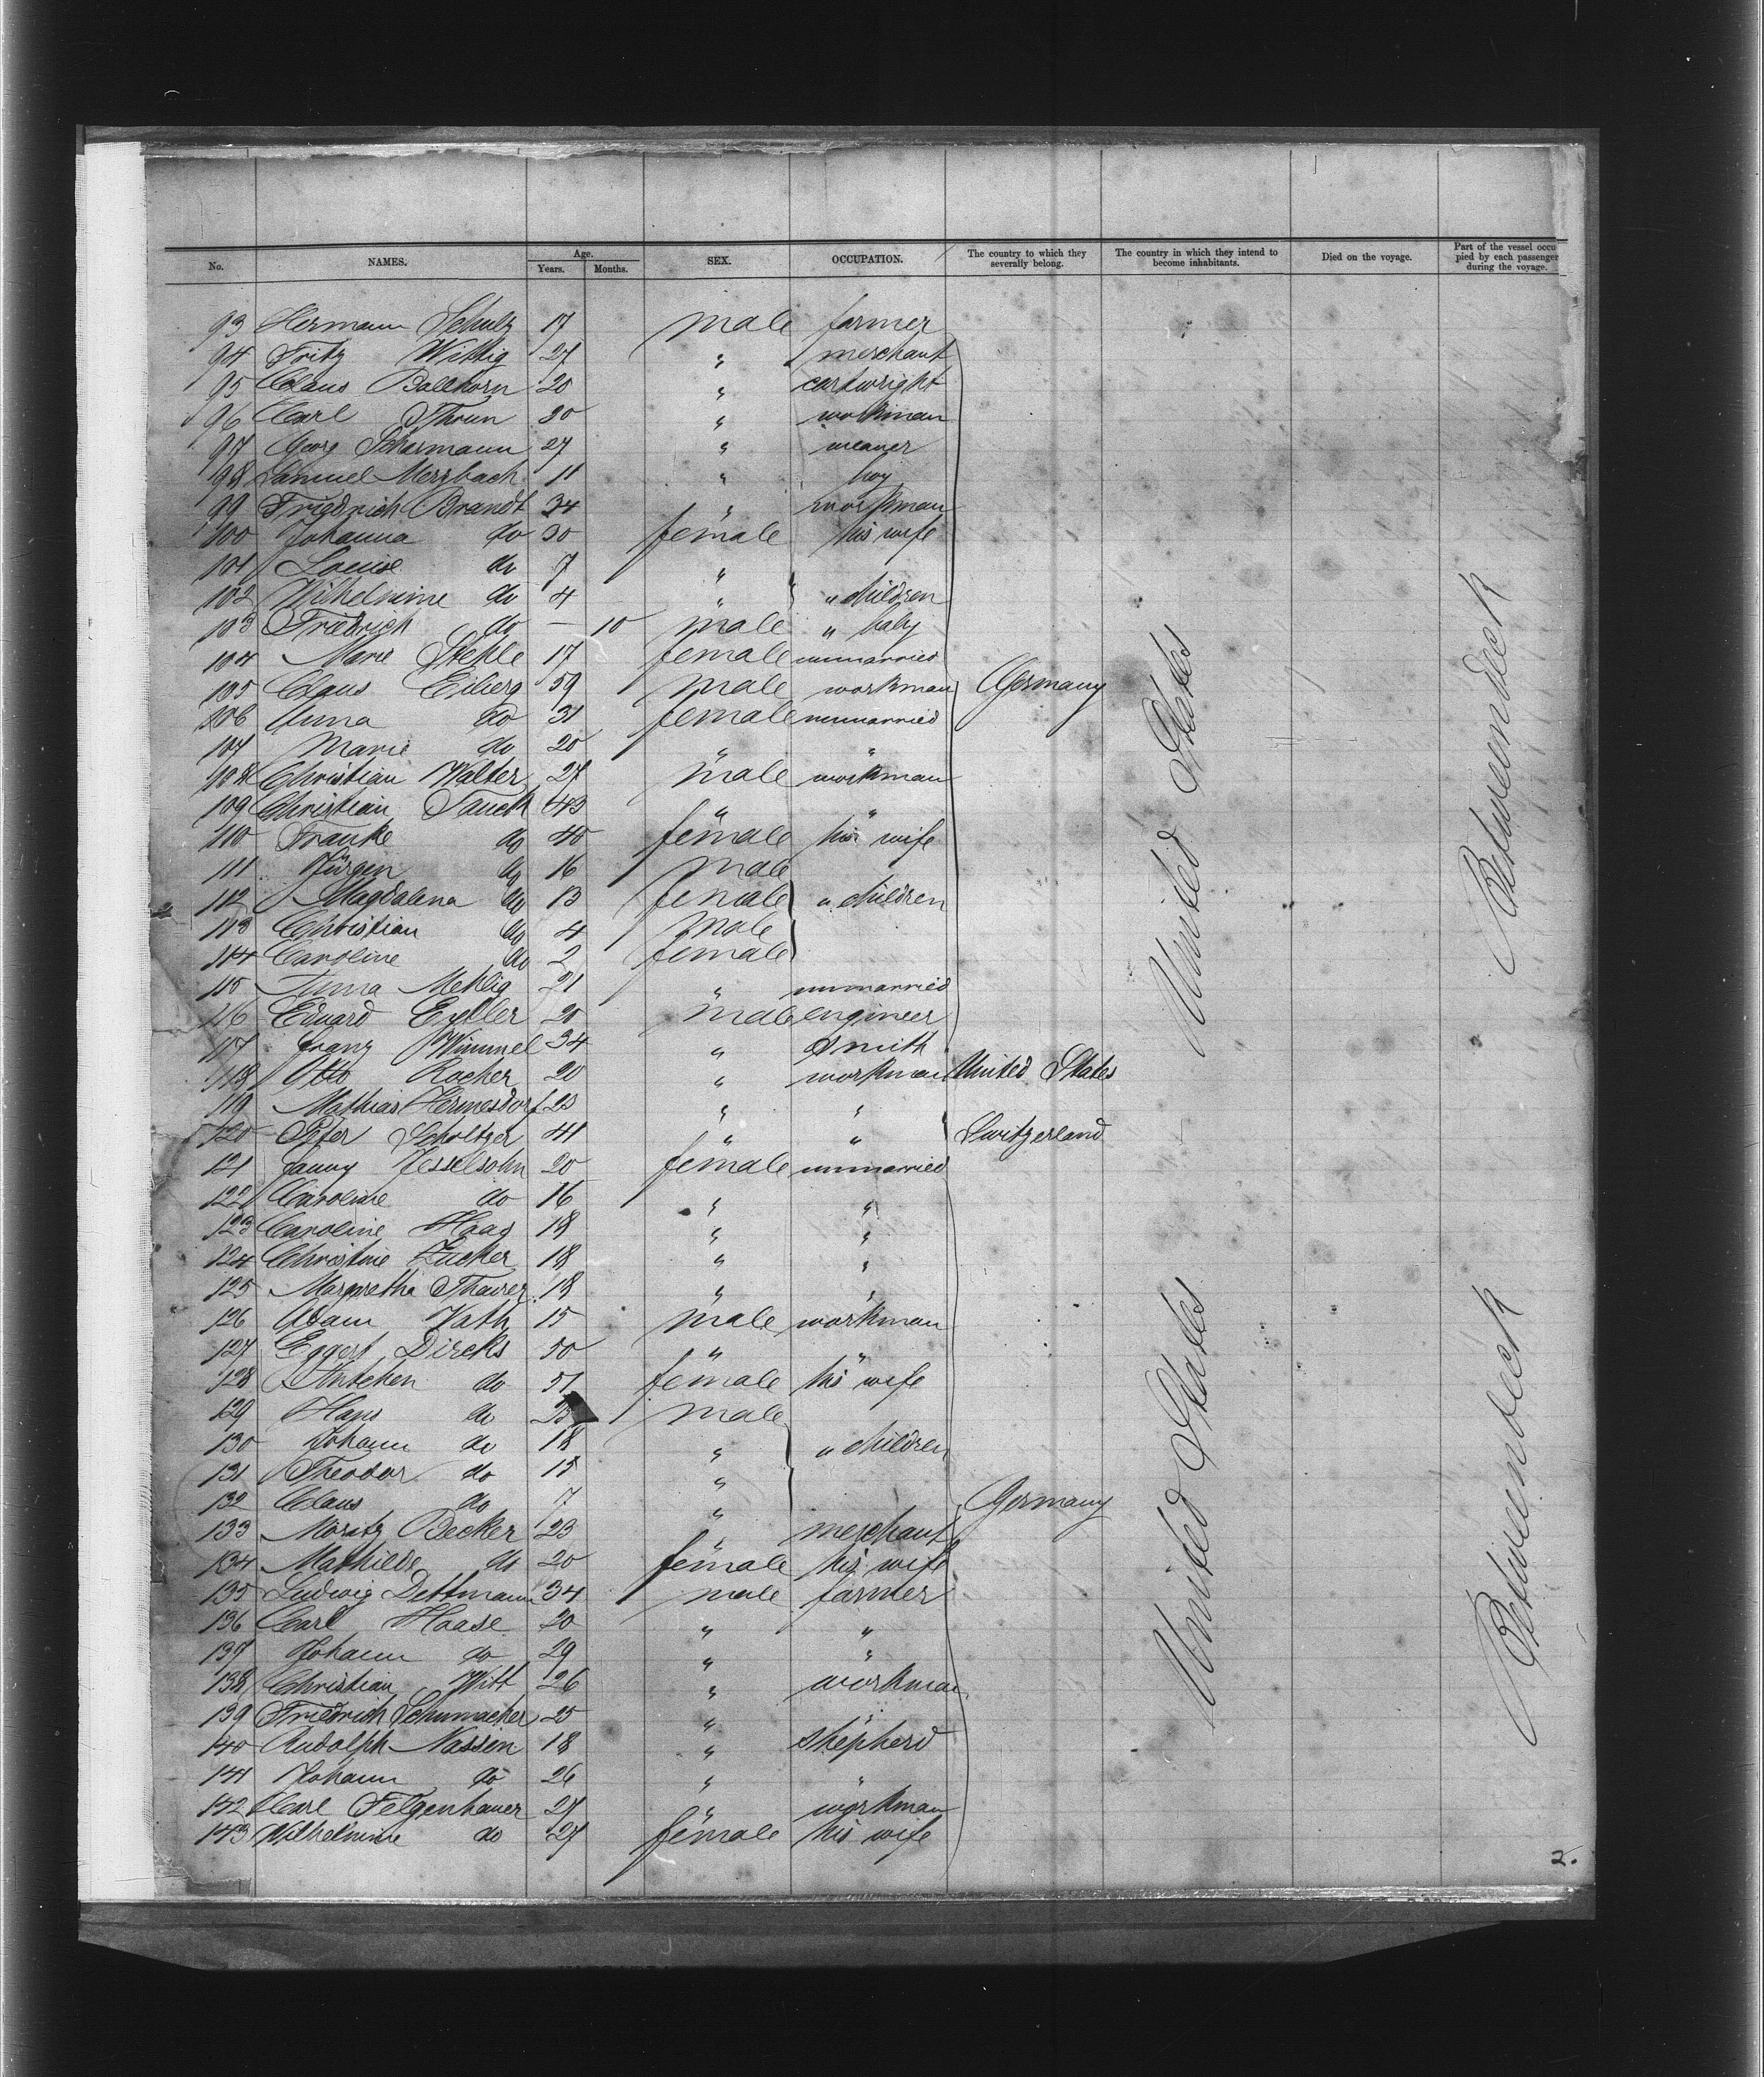 No. NAMES. Age. Years. Months. SEX. OCCUPATION. The country to which they severally belong. The country in which they intend to become inhabitants. Died on the voyage. Part of the vessel occupied by each passenger during the voyage.
93 Hermann Schulz 17 male farmer
94 Fritz Wittig 27 " merchant
95 Claus Ballhorn 20 " cartwright
96 Carl Thrun 30 " workman
97 Georg Scharmann 27 " weaver
98 Samuel Merzbach 11 " boy
99 Friedrich Brandt 34 " workman
100 Johanna do 30 female his wife
101 Louise do 7 "
102 Wilhelmine do 4 " " children
103 Friedrich do — 10 male " baby
104 Marie Stehle 17 female unmarried
105 Claus Eiberg 59 male workman Germany
106 Anna do 31 female unmarried
107 Marie do 20 " "
108 Christian Walter 27 male workman
109 Christian Tauck 43 " "
110 Franke do 40 female his wife
111 Jürgen do 16 male
112 Magdalena do 13 female " children
113 Christian do 4 male
114 Caroline do 2 female
115 Anna Mehlig 21 " unmarried
116 Eduard Eyller 20 male engineer
117 Franz Wimmel 34 " Smith
118 Otto Rocher 20 " workman United States
119 Mathias Hermesdorf 23 " "
120 Peter Scholtzer 41 " " Switzerland
121 Fanny Jesselsohn 20 female unmarried
122 Caroline do 16 " "
123 Caroline Haag 18 " "
124 Christine Zucker 18 " "
125 Margaretha Thaurer 18 " "
126 Adam Vath 15 male workman
127 Eggert Dircks 50 " "
128 Antchen do 51 female his wife
129 Hans do male
130 Johann do 18 " " children
131 Theodor do 15 "
132 Claus do 7 " Germany
133 Moritz Becker 23 " merchant
134 Mathilde do 20 female his wife
135 Ludwig Dettmann 34 male farmer
136 Carl Haase 20 " "
137 Johann do 29 " "
138 Christian Witt 26 " workman
139 Friedrich Schumacher 25 " "
140 Rudolph Nassen 18 " shepherd
141 Johann do 26 " "
142 Carl Felgenhauer 27 " workman
143 Wilhelmine do 27 female his wife
United States
United States
Betweendeck
Betweendeck
2.